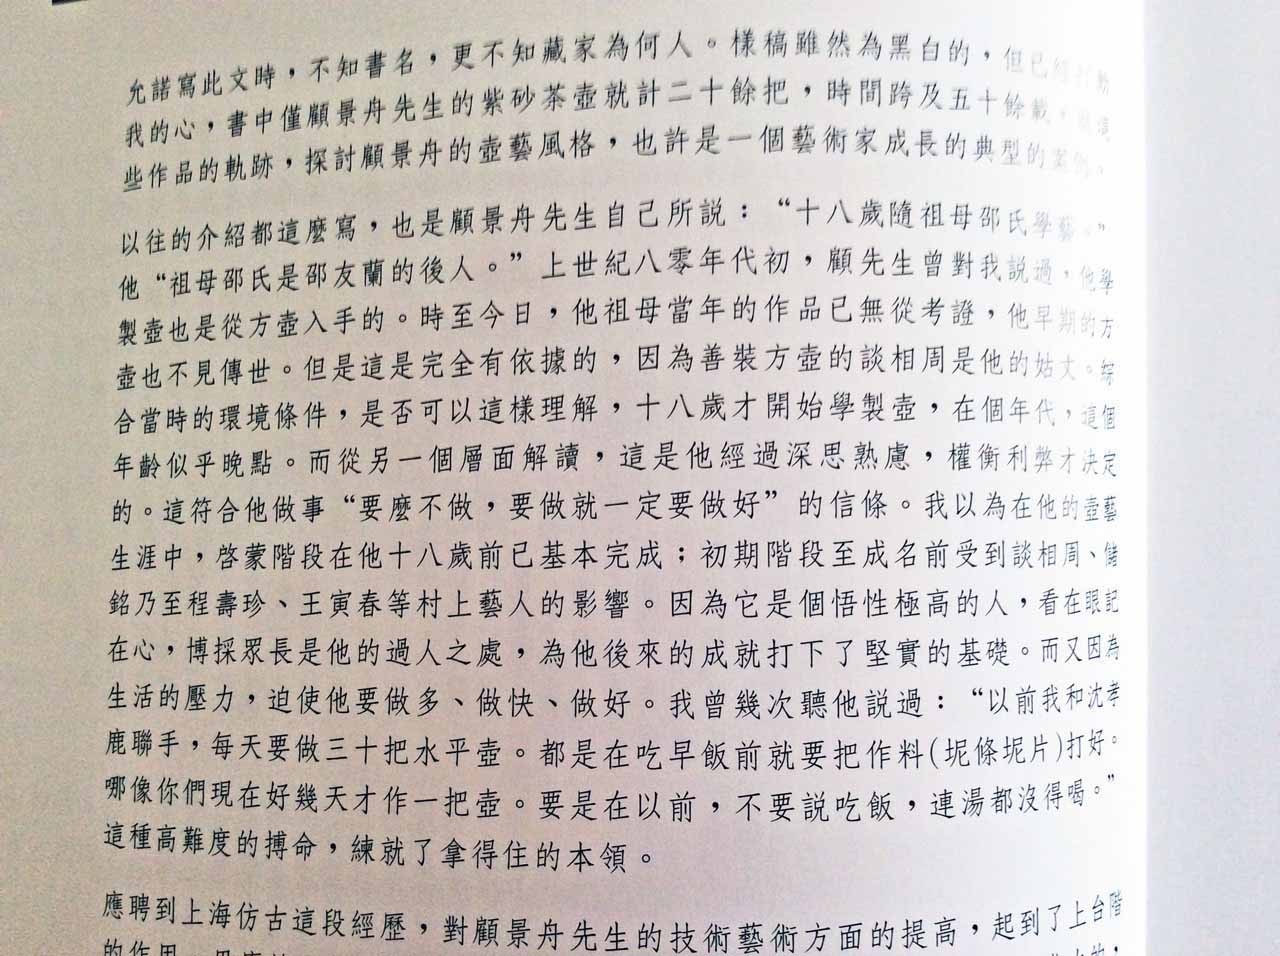 允諾寫此文時，不知書名，更不知藏家為何人。樣稿雖然為黑白的，但已經打動
我的心，書中僅顧景舟先生的紫砂茶壺就計二十餘把，時間跨及五十餘載，
些作品的軌跡，探討顧景舟的壺藝風格，也許是一個藝術家成長的典型的案例。
以往的介紹都這麼寫，也是顧景舟先生自己所説：“十八歲隨祖母邵氏學藝。”
他“祖母邵氏是邵友蘭的後人。”上世紀八零年代初，顧先生曾對我説過，他學
製壺也是從方壺入手的。時至今日，他祖母當年的作品已無從考證，他早期的方
壺也不見傳世。但是這是完全有依據的，因為善裝方壺的談相周是他的姑丈。綜
合當時的環境條件，是否可以這樣理解，十八歲才開始學製壺，在個年代，這個
年齡似乎晚點。而從另一個層面解讀，這是他經過深思熟慮，權衡利弊才決定
的。這符合他做事“要麼不做，要做就一定要做好”的信條。我以為在他的壺藝
生涯中，啓蒙階段在他十八歲前已基本完成；初期階段至成名前受到談相周、儲
銘乃至程壽珍、王寅春等村上藝人的影響。因為它是個悟性極高的人，看在眼記
在心，博採眾長是他的過人之處，為他後來的成就打下了堅實的基礎。而又因為
生活的壓力，迫使他要做多、做快、做好。我曾幾次聽他説過：“以前我和沈孝
鹿聯手，每天要做三十把水平壺。都是在吃早飯前就要把作料(坭條坭片)打好。
哪像你們現在好幾天才作一把壺。要是在以前，不要説吃飯，連湯都沒得喝。”
這種高難度的搏命，練就了拿得住的本領。
應聘到上海仿古這段經歷，對顧景舟先生的技術藝術方面的提高，起到了上台階
的作用，